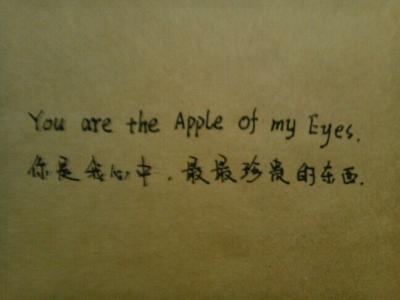 You are the Apple of my Eyes.
你是我心中，最最珍贵的东西.